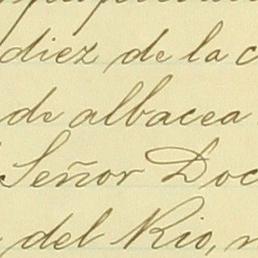 diez de la c
de albacea
Señor Doc
del Rio,